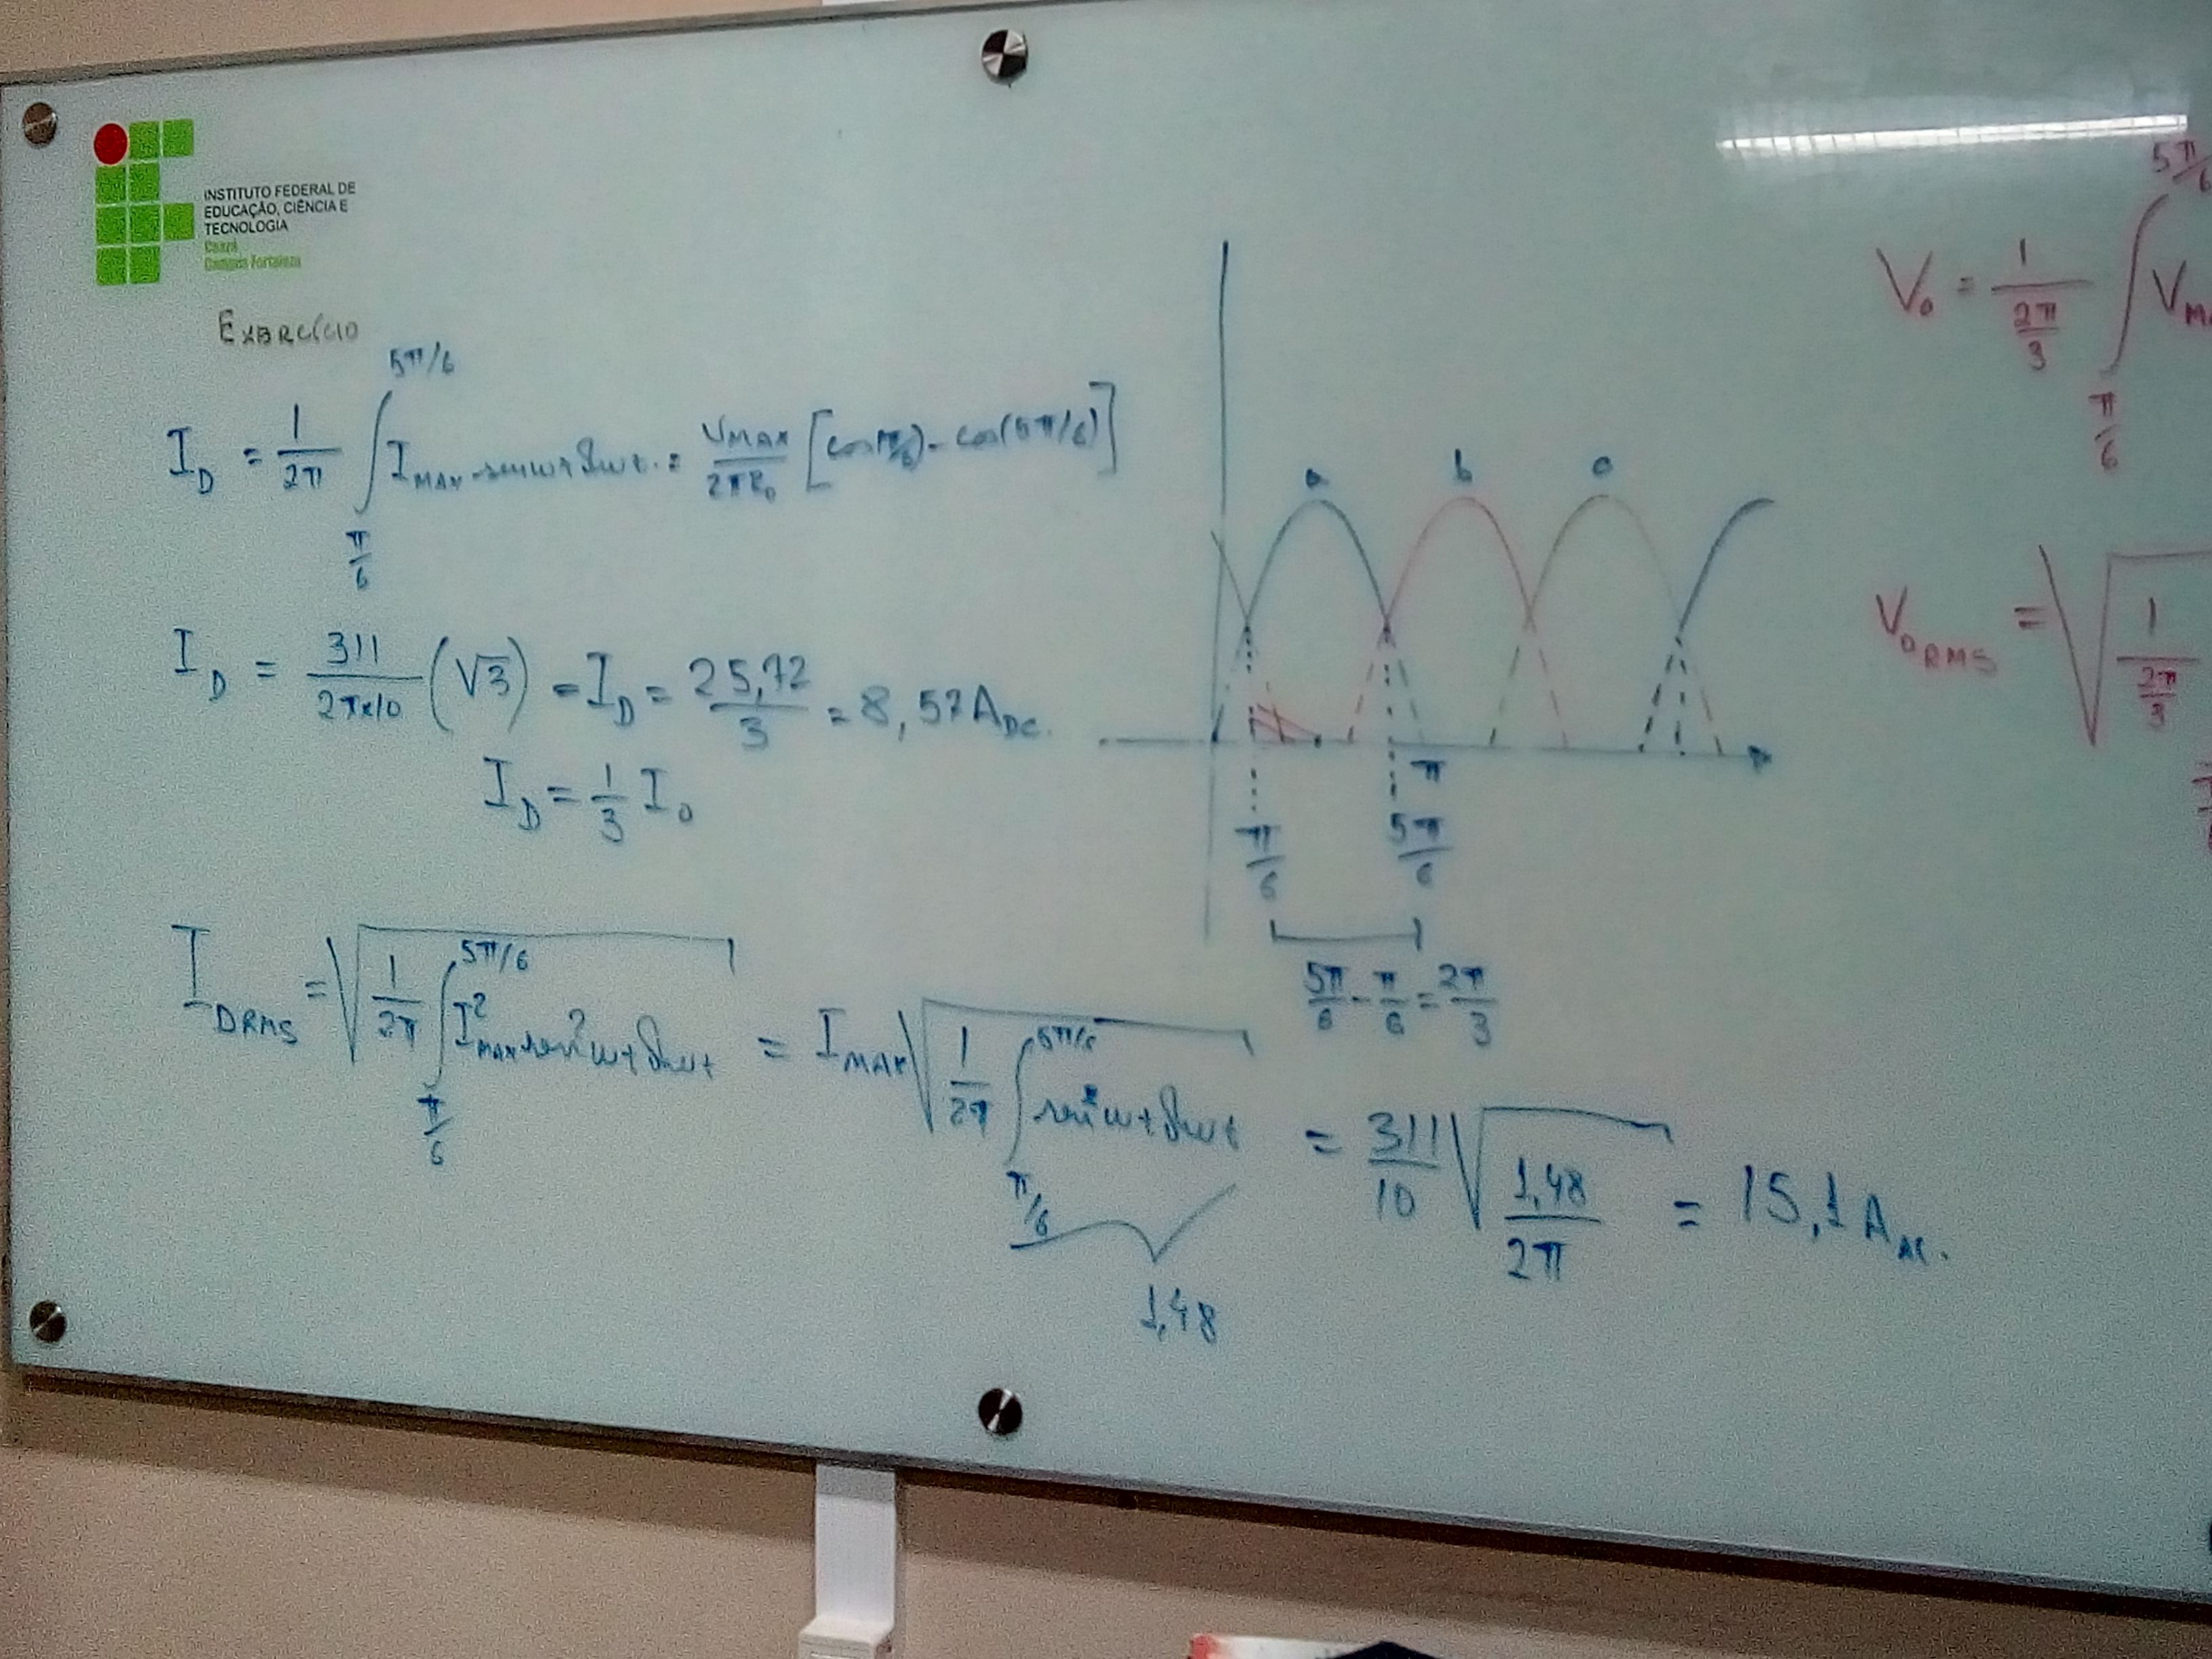 INSTITUTO FEDERAL DE
EDUCAÇÃO, CIÊNCIA E
TECNOLOGIA
Ceará
Campus Fortaleza
EXERCÍCIO
I_D = 1/2π ∫_{π/6}^{5π/6} I_MAX·sen wt dwt = V_MAX/2πR_0 [cos(π/6) - cos(5π/6)]
I_D = 311/2π×10 (√3) = I_D = 25,72/3 = 8,57 A_DC.
I_D = 1/3 I_0
I_DRMS = √(1/2π ∫_{π/6}^{5π/6} I²_MAX·sen²wt dwt) = I_MAX √(1/2π ∫_{π/6}^{5π/6} sen²wt dwt) = 311/10 √(1,48/2π) = 15,1 A_AC.
1,48
a b c
π
π/6 5π/6
5π/6 - π/6 = 2π/3
V_0 = 1/(2π/3) ∫_{π/6}^{5π/6} V_M
V_0RMS = √ 1/(2π/3)